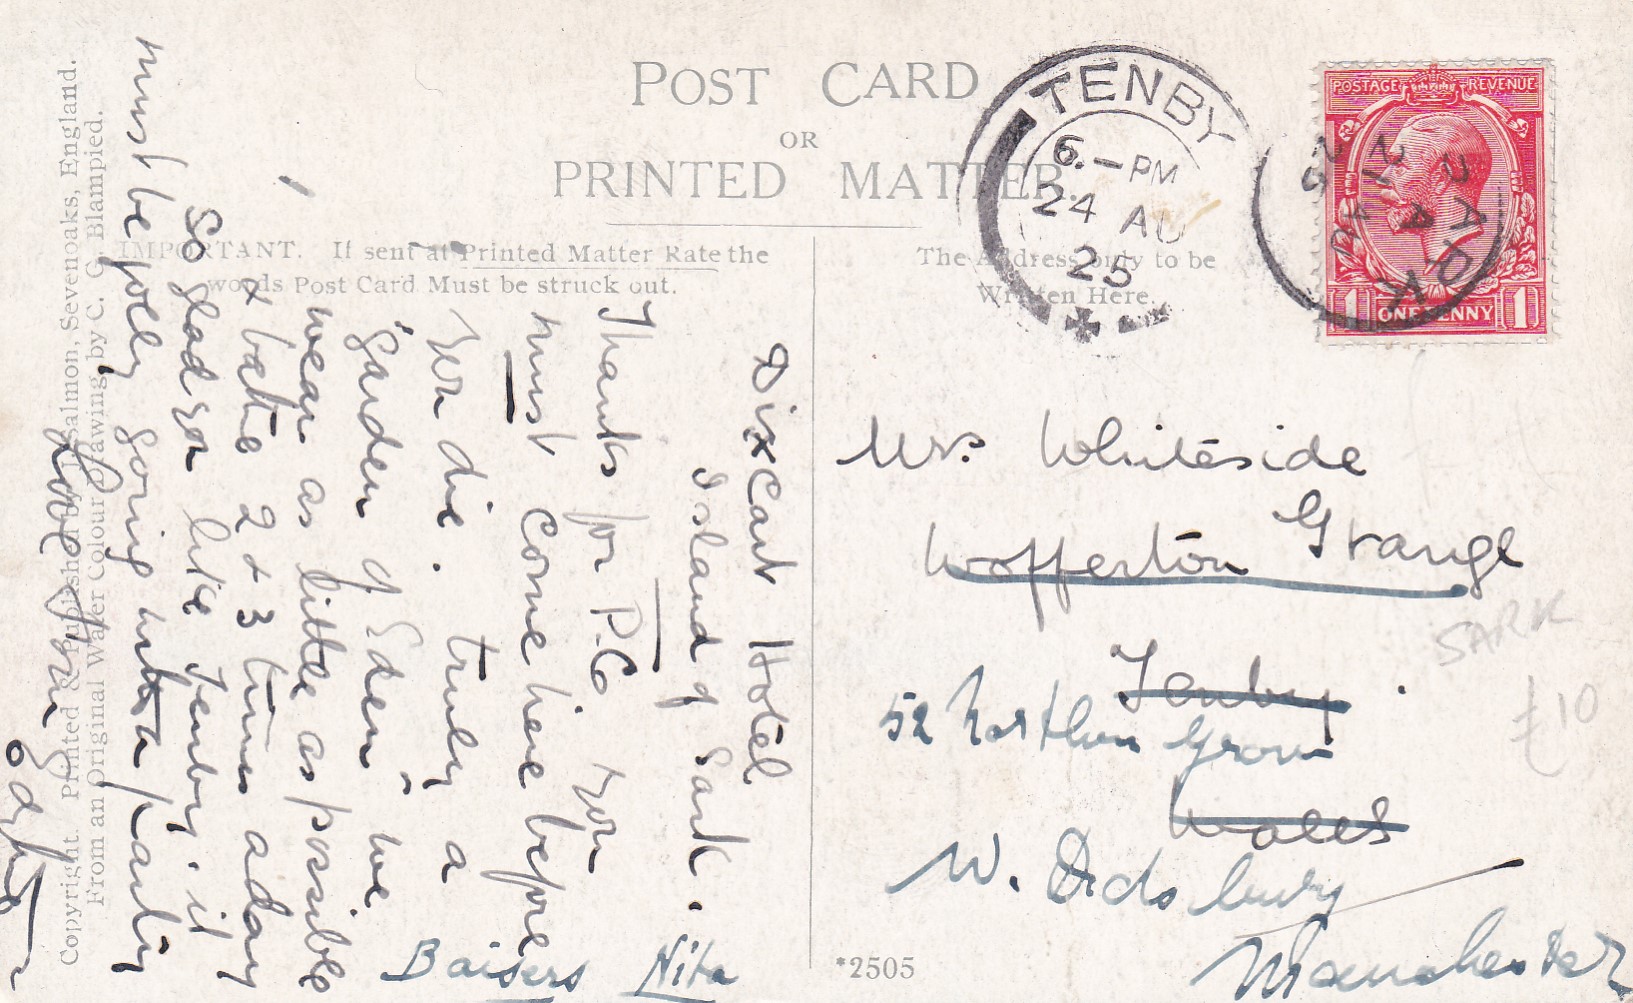 POST CARD
OR
PRINTED MATTER.
IMPORTANT. If sent at Printed Matter Rate the
words Post Card Must be struck out.
The Address only to be
Written Here.
TENBY
6.-PM
24 AU
25
SARK
21 AU
25
POSTAGE REVENUE
1 ONE PENNY 1
Dixcart Hotel
Island of Sark.
Thanks for P.C. You
must come here before
you die. Truly a
"garden of Eden" we
wear as little as possible
& bathe 2 & 3 times a day
So glad you like Tenby. it
must be jolly going with a party
Love from
Baisers Nita
Mrs. Whiteside
Wofferton Grange
Tenby.
Wales
52
W. Didsbury
Manchester
SARK
£10
*2505
Copyright. Printed & Published by J. Salmon, Sevenoaks, England.
From an Original Water Colour Drawing by C. G. Blampied.